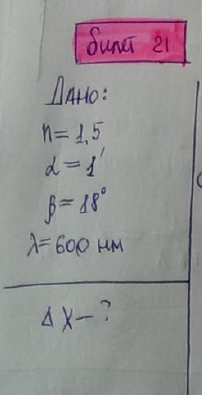 билет 21
Дано:
n=1,5
α=1′
β=18°
λ=600 нм
Δ X-?